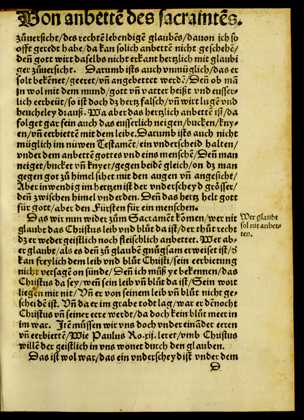 Von anbettē des sacramtēs.
zůuersicht/des rechtē lebendige glaubēs/dauon ich so
offt geredt habe/da kan solich anbettē nit geschehē/
den gott wirt daselbs nicht erkant hertzlich mit glaubi
ger zůuersicht. Darumb ists auch vnmüglich/das er
solt bekēnet/geeret/vn̄ angebettet werdē. Den ob mā
jn wol mit dem mund/gott vn̄ vatter heißt vnd eusser-
lich eerbeüt/so ist doch dz hertz falsch/vn̄ wirt lugē vnd
heucheley drauß. Wa aber das hertzlich anbettē ist/da
folget gar sein auch das eüsserlich neigen/bucken/kny-
en/vn̄ eerbietē mit dem leibe. Darumb ists auch nicht
müglich im nüwen Testamēt/ein vnderscheid haltten/
vnder dem anbettē gottes vnd eins menschē/Den man
neiget/bucket vn̄ knyet/gegen beidē gleich/on dz man
gegen got zů himel siher mit den augen vn̄ angesicht/
Aber inwendig im hertzen ist der vnderscheyd grösser/
den zwischen himel vnd erden. Den das hertz helt gott
für gott/aber den Fürsten für ein menschen.
Das wir nun wider zům Sacramēt kōmen/wer nit
glaubt das Christus leib vnd blůt da ist/der thůt recht
dz er weder geistlich noch fleischlich anbettet. Wer ab-
er glaubt/als es den zů glaubē gnůgsam erweiset ist/d
kan freylich dem leib vnd blůt Christi/sein eerbietung
nicht versagē on sünde/Den ich můß ye bekennen/das
Christus da sey/wen sein leib vn̄ blůt da ist/Sein wort
liegen mir nit/Vn̄ er von seinem leib vn̄ blůt nicht ge-
scheidē ist. Vn̄ da er im grabe todt lag/war er dēnocht
Christus vn̄ seiner eere werde/da doch kein blůt meer in
im war.
vn̄ eerbietē/Wie Paulus Ro.xij. leret/vmb Christus
willē der geistlich in vns wonet durch den glauben.
Das ist wol war/das ein vnderscheyd ist vnder dem
D
Wer glaubt
sol nit anbet-
ten.